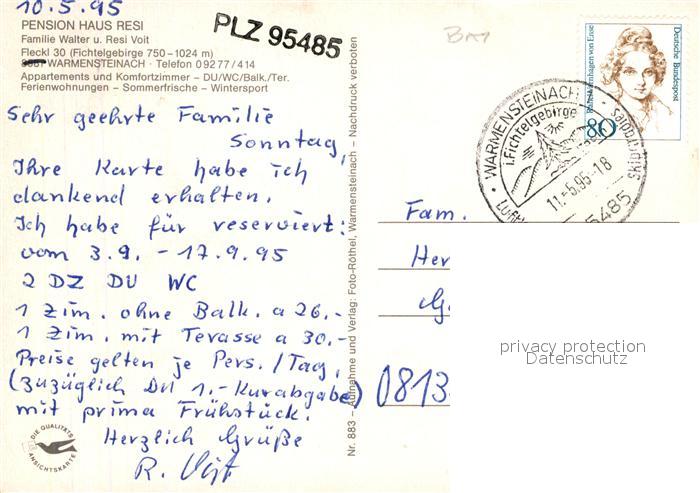 10.5.95
PENSION HAUS RESI
Familie Walter u. Resi Voit
Fleckl 30 (Fichtelgebirge 750–1024 m)
WARMENSTEINACH · Telefon 09277/414
Appartements und Komfortzimmer – DU/WC/Balk./Ter.
Ferienwohnungen – Sommerfrische – Wintersport
PLZ 95485
Sehr geehrte Familie
Sonntag,
Ihre Karte habe ich
dankend erhalten.
Ich habe für reserviert:
vom 3.9. - 17.9.95
2 DZ DU WC
1 Zim. ohne Balk. a 26.-
1 Zim. mit Terasse a 30.-
Preise gelten je Pers./Tag,
(zuzüglich DM 1.- Kurabgabe)
mit prima Frühstück.
Herzlich Grüße
R. Voit
DIE QUALITÄTS
ANSICHTSKARTE
Nr. 883 – Aufnahme und Verlag: Foto-Röthel, Warmensteinach – Nachdruck verboten
BAY
Deutsche Bundespost
Rahel Varnhagen von Ense
80
WARMENSTEINACH
i. Fichtelgebirge
11.-5.95-18
95485
Fam.
Her
G.
0813
privacy protection
Datenschutz